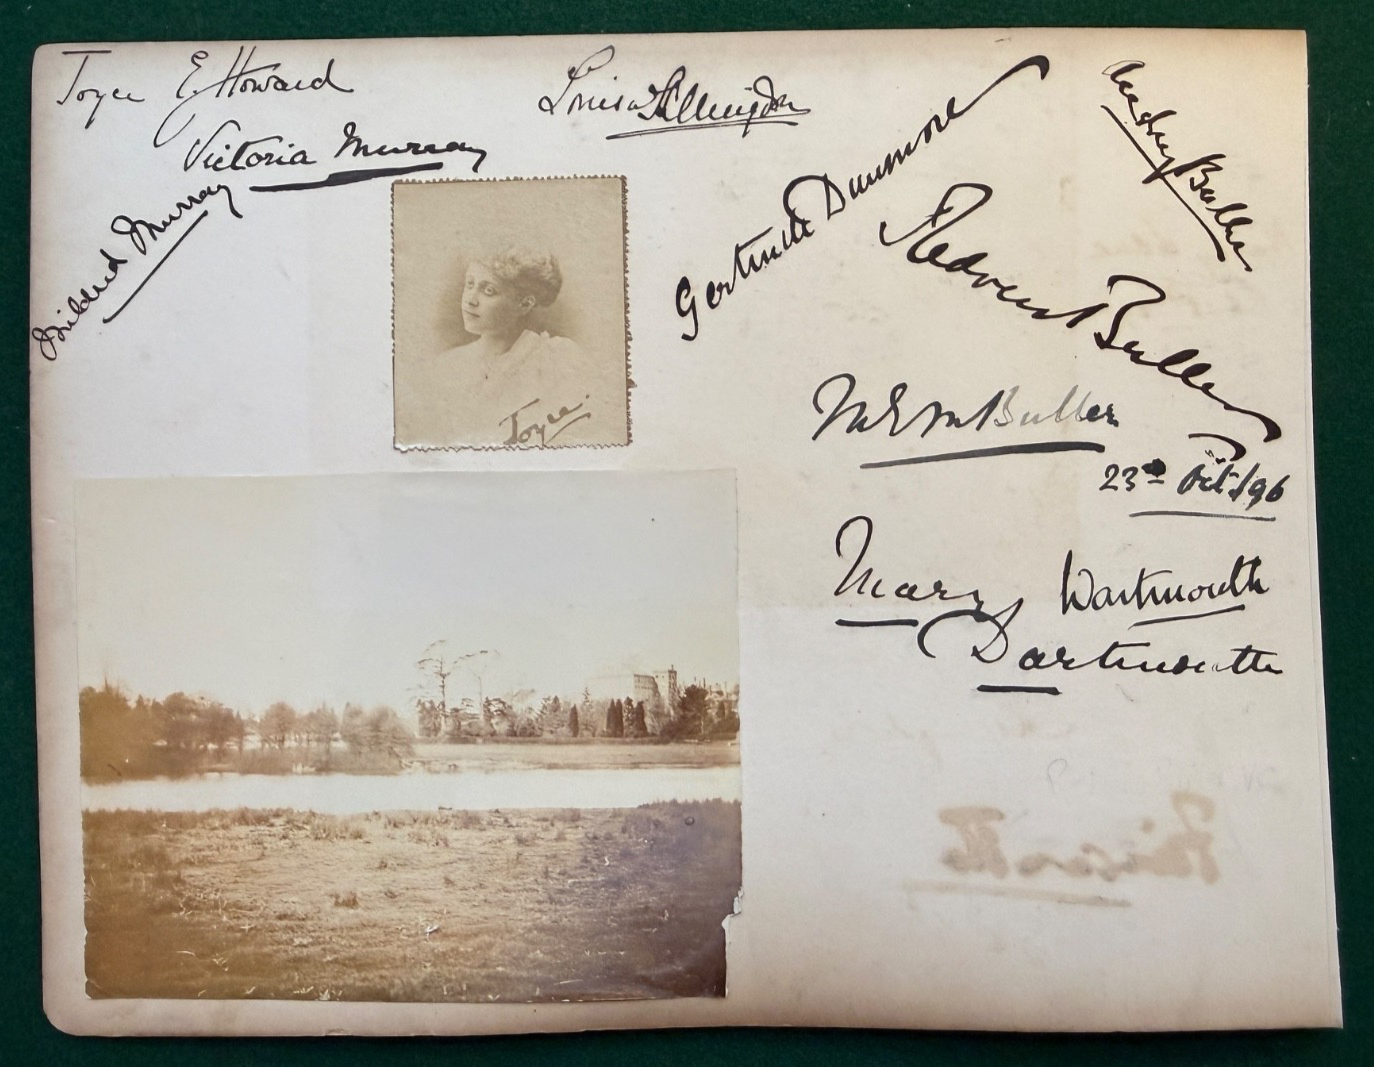 Joyce E. Howard
Louisa
Victoria Murray
Mildred Murray
Gertrude Dunmore
Audrey Buller
Redvers Buller
Joyce.
Buller
23rd Oct/96
Mary Dartmouth
Dartmouth